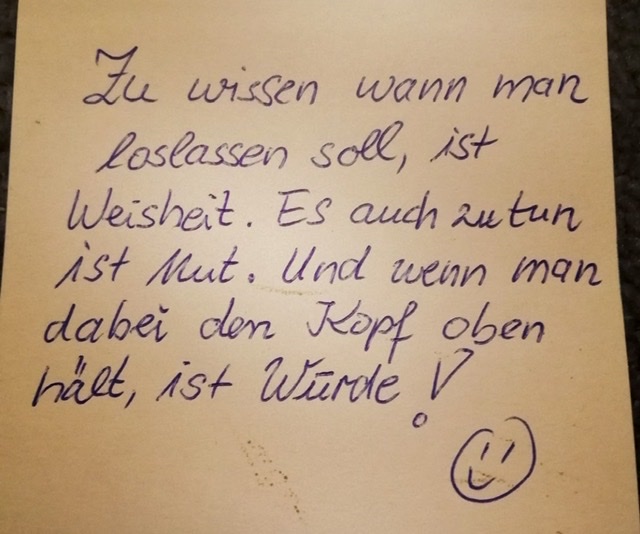 Zu wissen wann man
loslassen soll, ist
Weisheit. Es auch zu tun
ist Mut. Und wenn man
dabei den Kopf oben
hält, ist Würde!